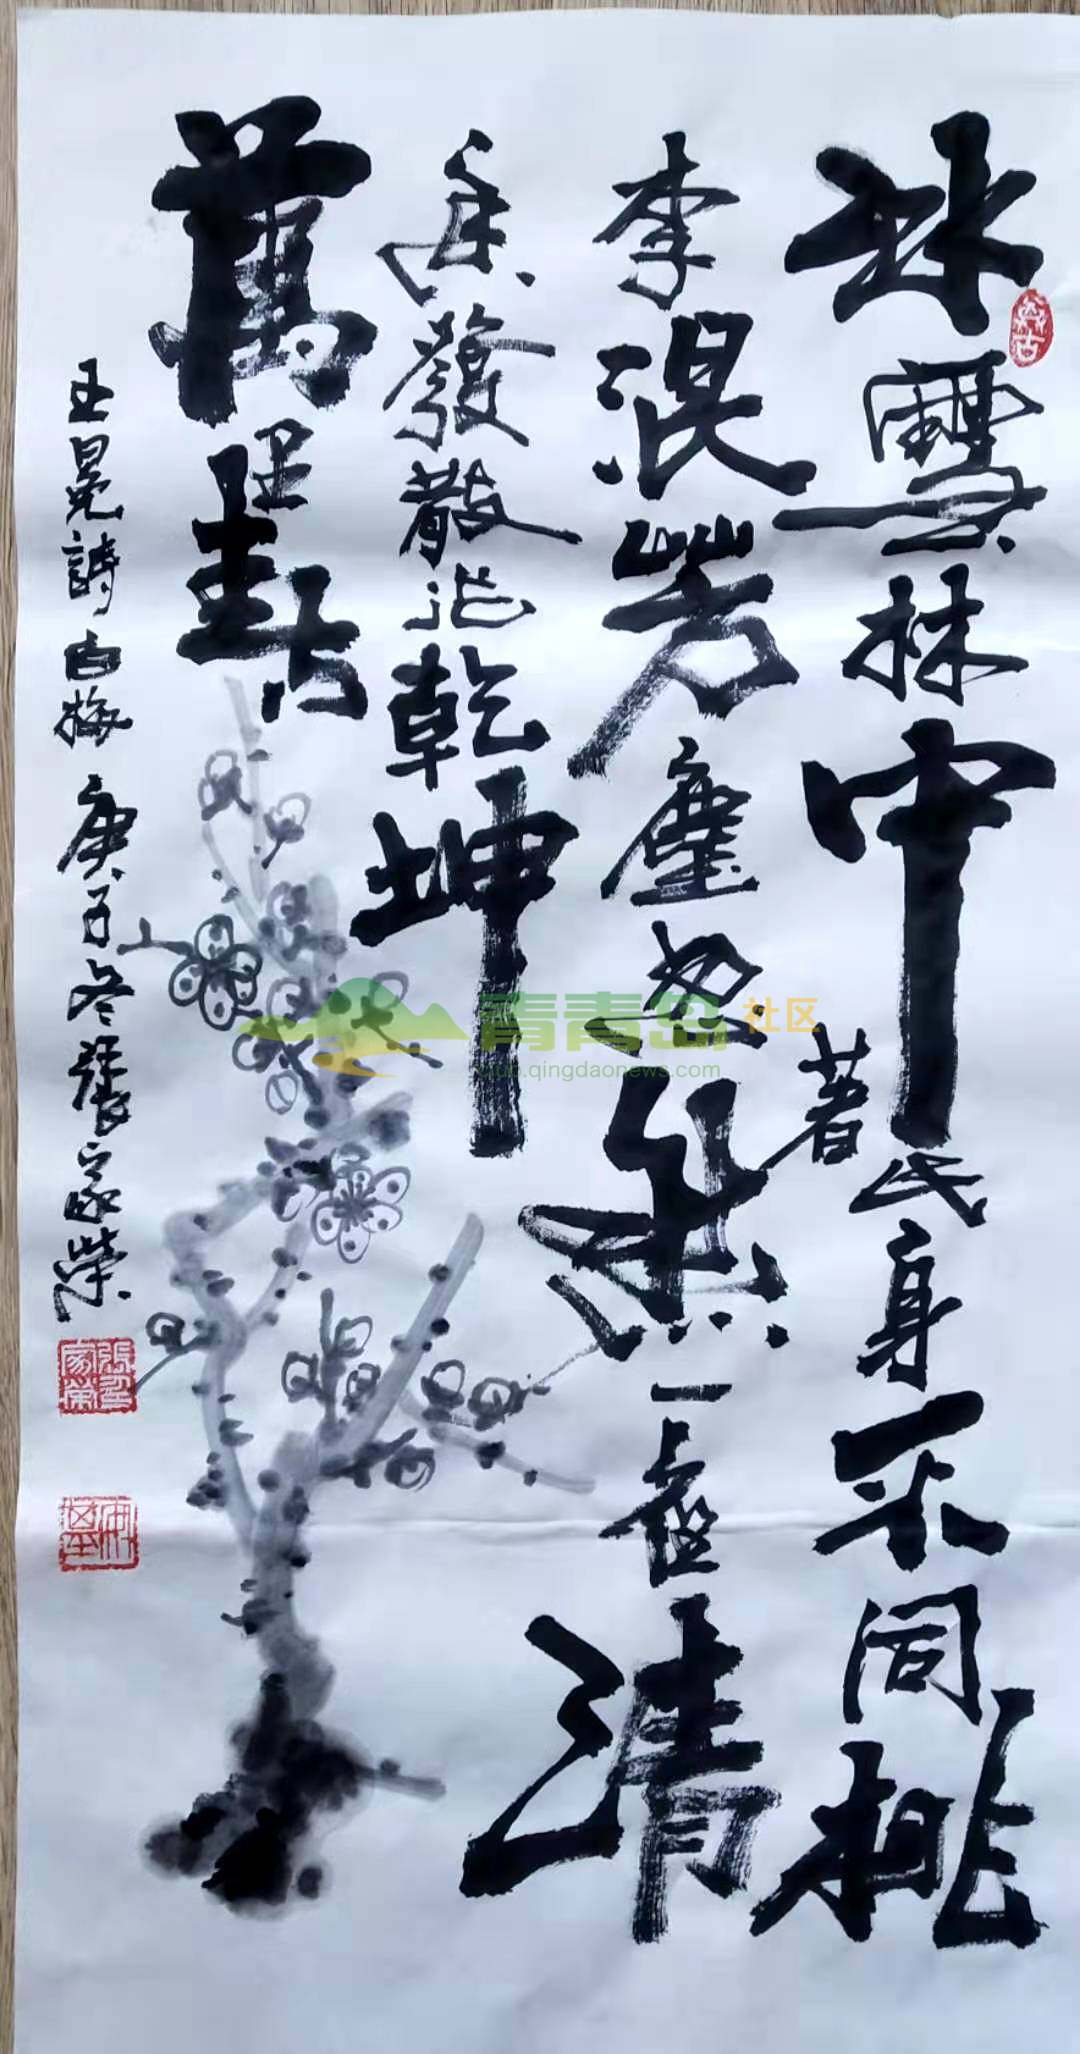 冰雪林中著此身不同桃
李混芳塵忽然一夜清
香發散作乾坤
萬里春
王冕詩白梅 庚子冬張家榮
青青岛社区
club.qingdaonews.com